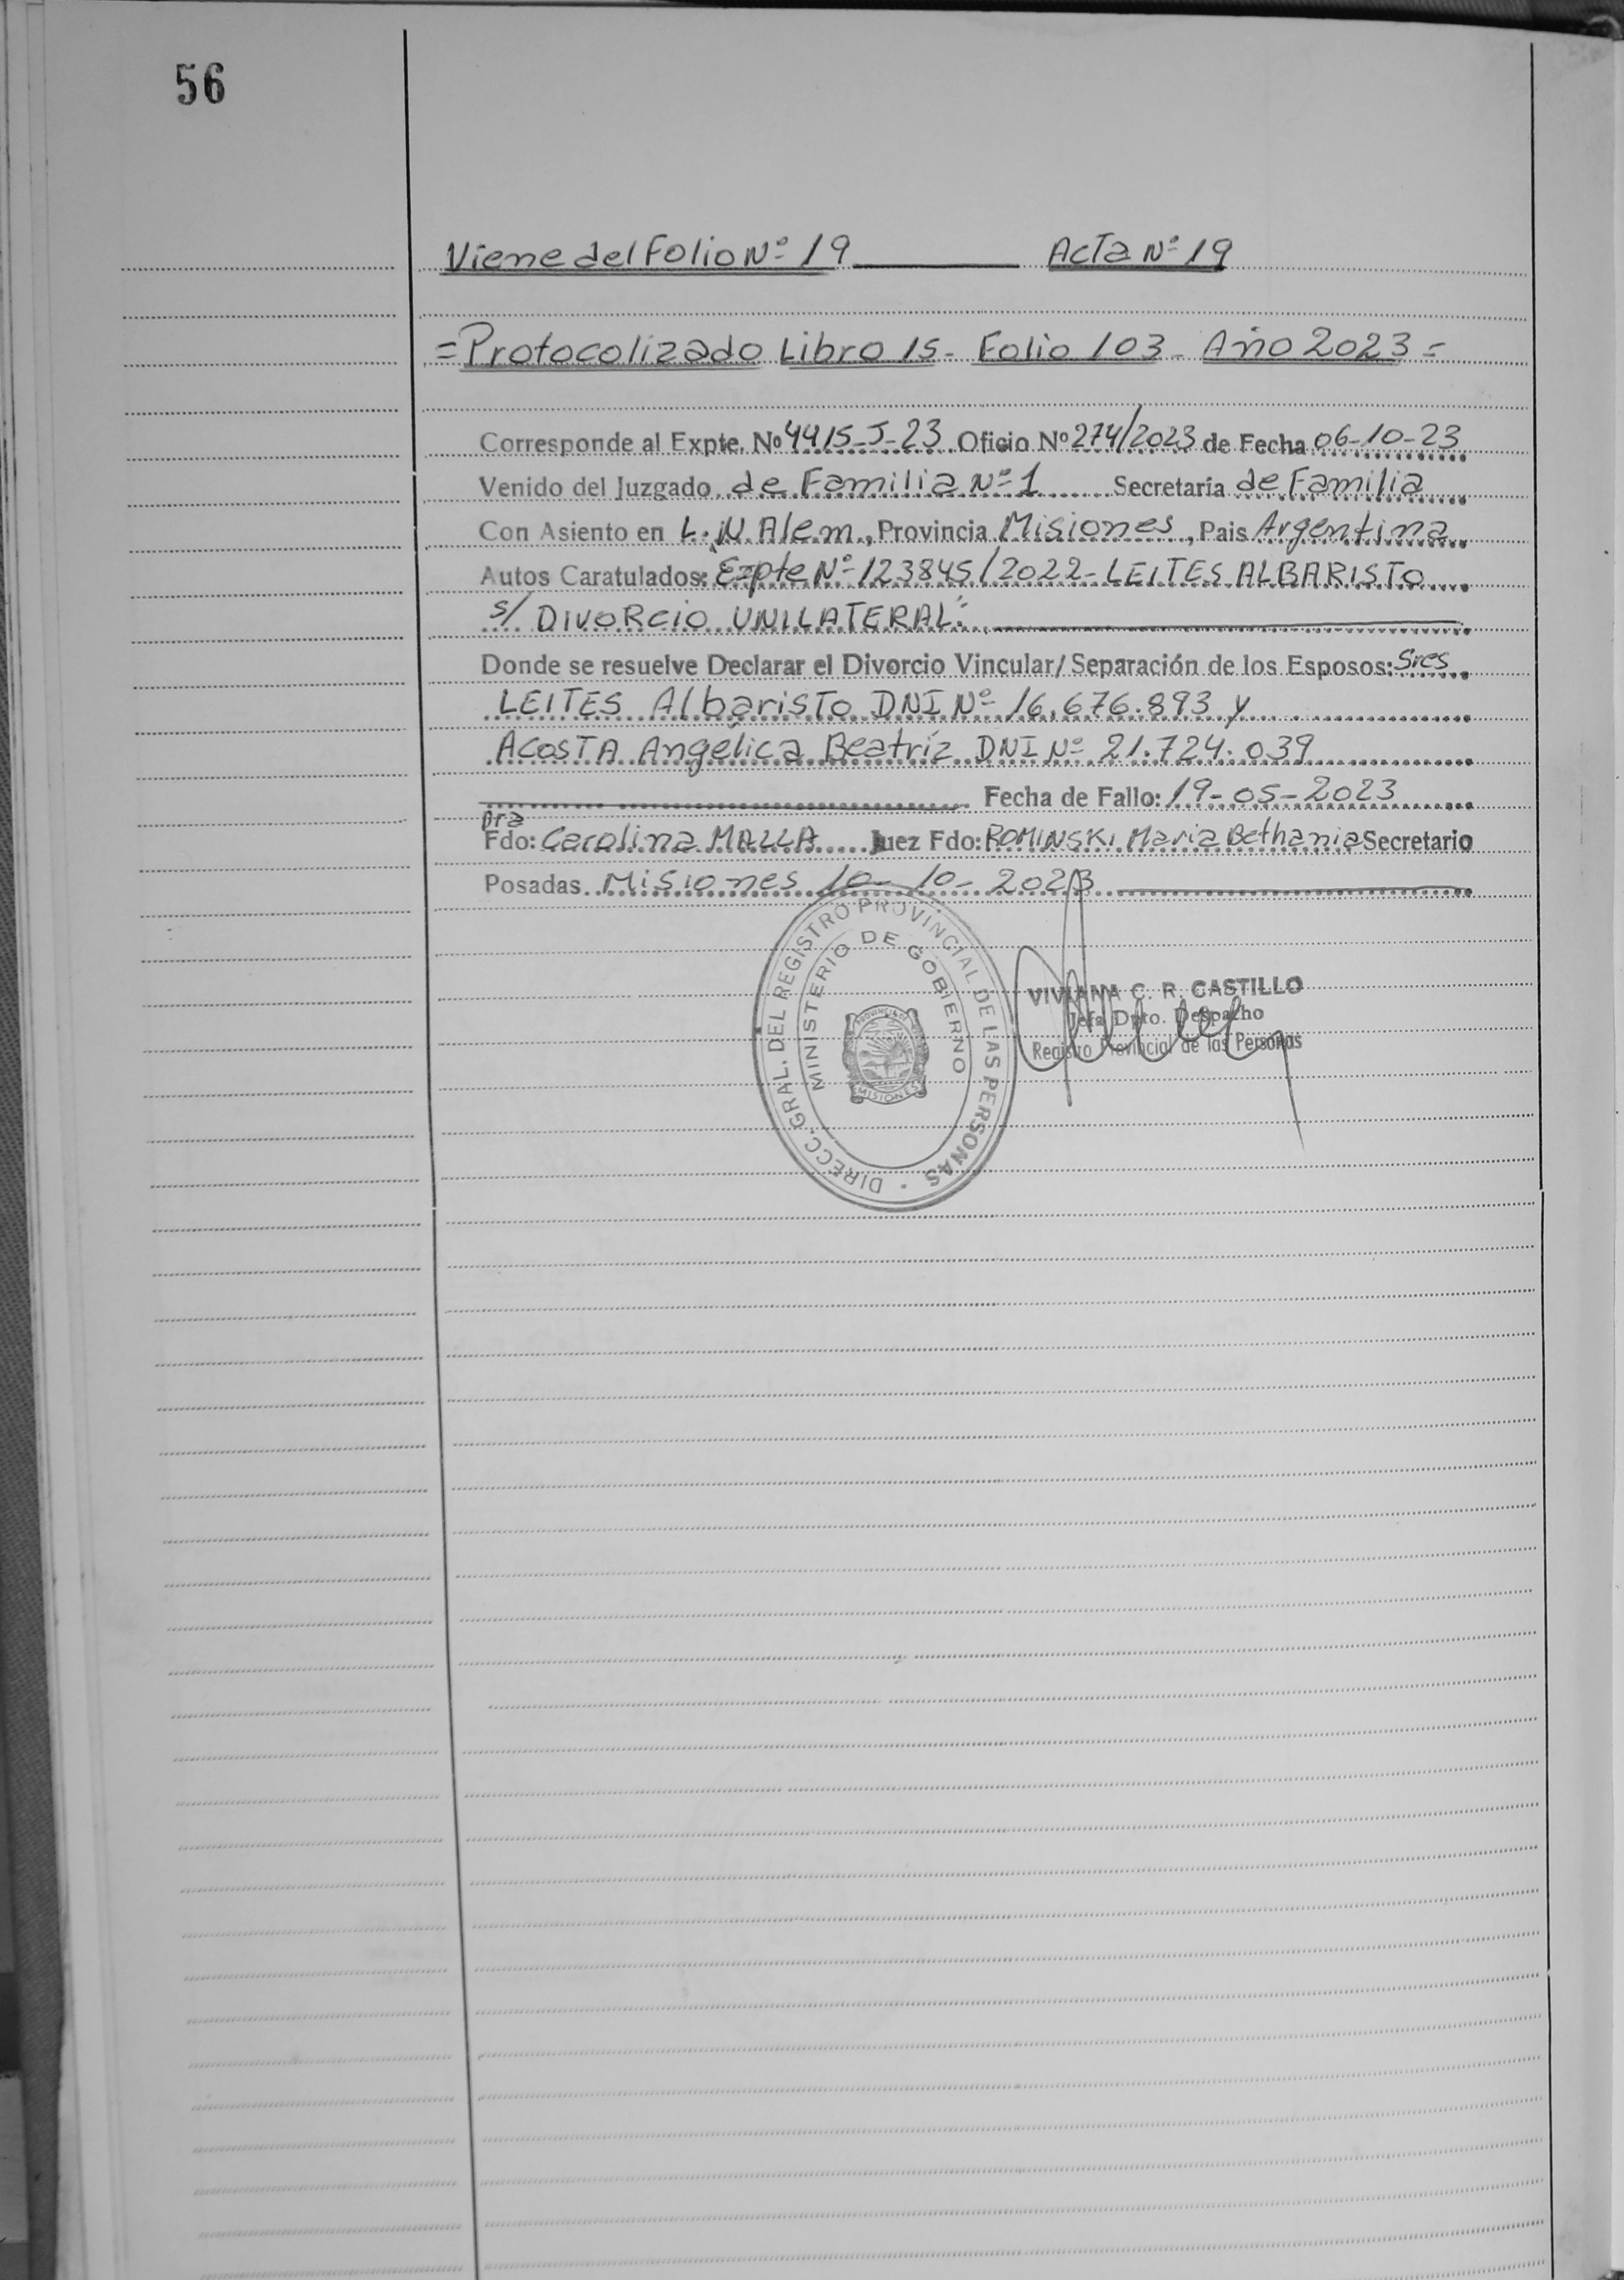 56
Viene del Folio Nº 19 Acta Nº 19
= Protocolizado Libro 15 - Folio 103 - Año 2023 =
Corresponde al Expte. Nº 4415-J-23 Oficio Nº 274/2023 de Fecha 06-10-23
Venido del Juzgado de Familia Nº 1 Secretaría de Familia
Con Asiento en L. N. Alem, Provincia Misiones, Pais Argentina
Autos Caratulados: Expte Nº 123845/2022 - LEITES ALBARISTO
s/ DIVORCIO UNILATERAL:
Donde se resuelve Declarar el Divorcio Vincular/Separación de los Esposos: Sres
LEITES Albaristo DNI Nº 16.676.893 y
ACOSTA Angélica Beatríz DNI Nº 21.724.039
Fecha de Fallo: 19-05-2023
Dra
Fdo: Carolina MALLA Juez Fdo: ROMINSKI Maria Bethania Secretario
Posadas Misiones 10-10-2023
DIRECC. GRAL. DEL REGISTRO PROVINCIAL DE LAS PERSONAS
MINISTERIO DE GOBIERNO
PROVINCIA DE
MISIONES
VIVIANA C. R. CASTILLO
Jefa Dpto. Despacho
Registro Provincial de las Personas